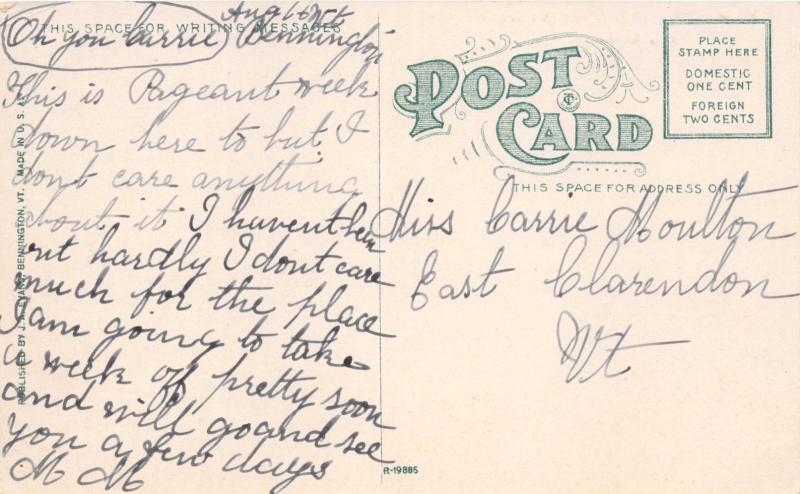 THIS SPACE FOR WRITING MESSAGES
Oh you Carrie Bennington
This is Pageant week
down here to but I
dont care anything
about it I havent been
out hardly I dont care
much for the place
I am going to take
a week off pretty soon
and will go and see
you a few days
M M
PUBLISHED BY J. A. EVANS, BENNINGTON, VT. MADE IN U. S. A.
POST
CARD
THIS SPACE FOR ADDRESS ONLY
PLACE
STAMP HERE
DOMESTIC
ONE CENT
FOREIGN
TWO CENTS
Miss Carrie Moulton
East Clarendon
Vt
R-19885